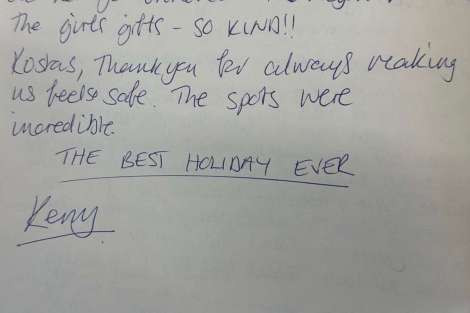 The girls gifts - SO KIND!!
Kostas, Thank you for always making
us feel so safe. The spots were
incredible.
THE BEST HOLIDAY EVER